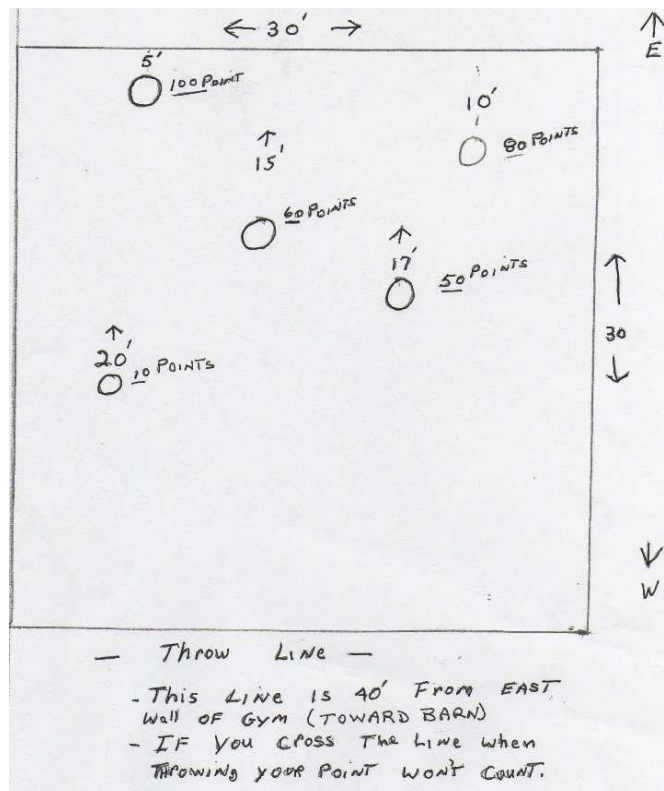 ← 30' →
E
5'
100 POINT
10'
80 POINTS
15'
60 POINTS
17'
50 POINTS
30
20'
10 POINTS
W
— Throw Line —
- This Line Is 40' From EAST
Wall OF Gym (TOWARD BARN)
- IF You Cross The Line when
Throwing your Point Won't Count.